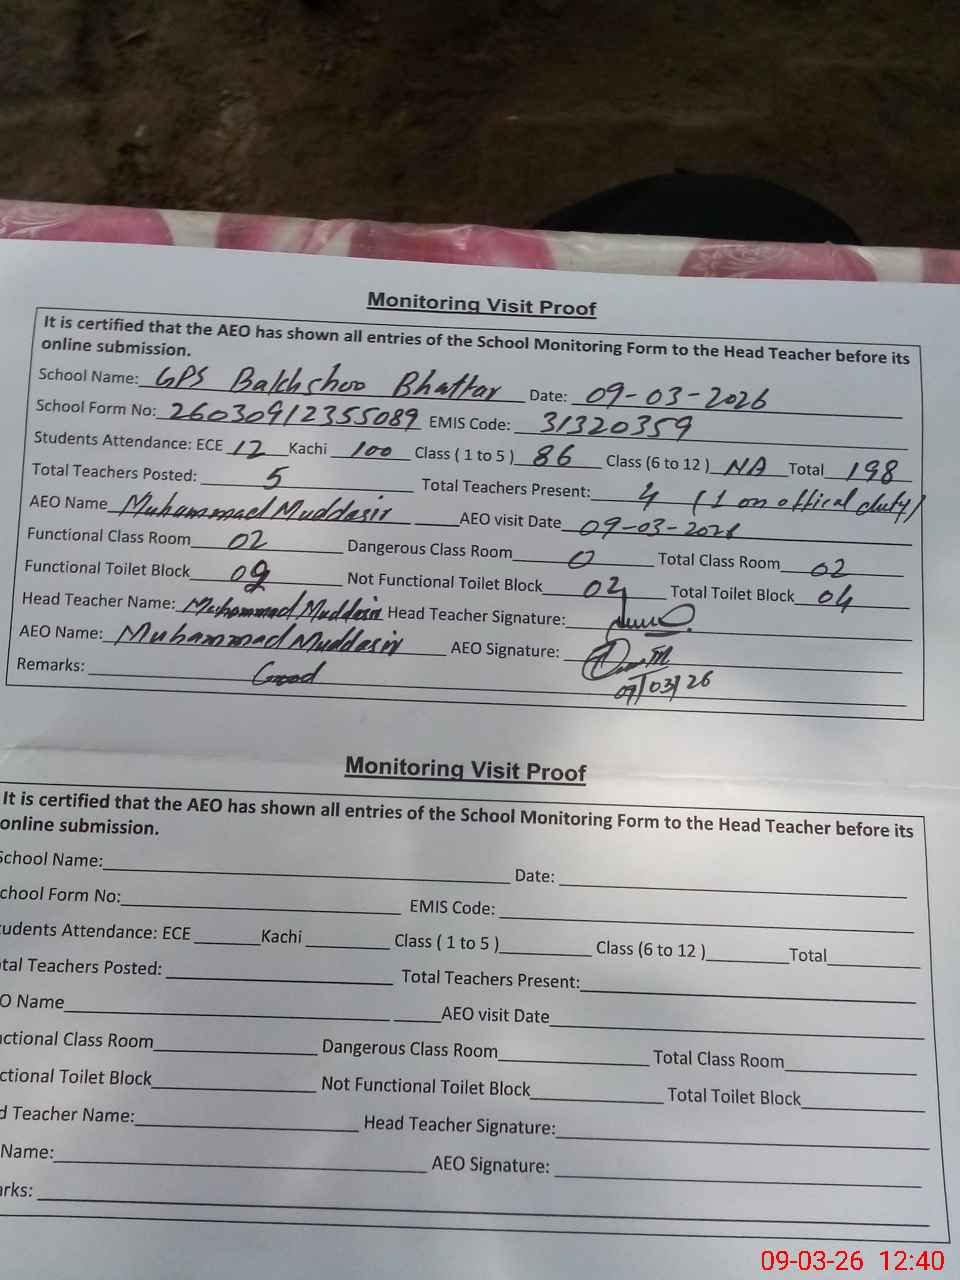 Monitoring Visit Proof
It is certified that the AEO has shown all entries of the School Monitoring Form to the Head Teacher before its
online submission.
School Name: GPS Bakhshoo Bhattar Date: 09-03-2026
School Form No: 26030912355089 EMIS Code: 31320359
Students Attendance: ECE 12 Kachi 100 Class ( 1 to 5 ) 86 Class (6 to 12 ) NA Total 198
Total Teachers Posted: 5 Total Teachers Present: 4 (1 on offical duty)
AEO Name Muhammad Muddasir AEO visit Date 09-03-2026
Functional Class Room 02 Dangerous Class Room 0 Total Class Room 02
Functional Toilet Block 02 Not Functional Toilet Block 02 Total Toilet Block 04
Head Teacher Name: Muhammad Muddasir Head Teacher Signature:
AEO Name: Muhammad Muddasir AEO Signature:
09/03/26
Remarks: Good
Monitoring Visit Proof
It is certified that the AEO has shown all entries of the School Monitoring Form to the Head Teacher before its
online submission.
School Name: Date:
chool Form No: EMIS Code:
tudents Attendance: ECE Kachi Class ( 1 to 5 ) Class (6 to 12 ) Total
tal Teachers Posted: Total Teachers Present:
O Name AEO visit Date
ctional Class Room Dangerous Class Room Total Class Room
ctional Toilet Block Not Functional Toilet Block Total Toilet Block
d Teacher Name: Head Teacher Signature:
Name: AEO Signature:
arks:
09-03-26 12:40